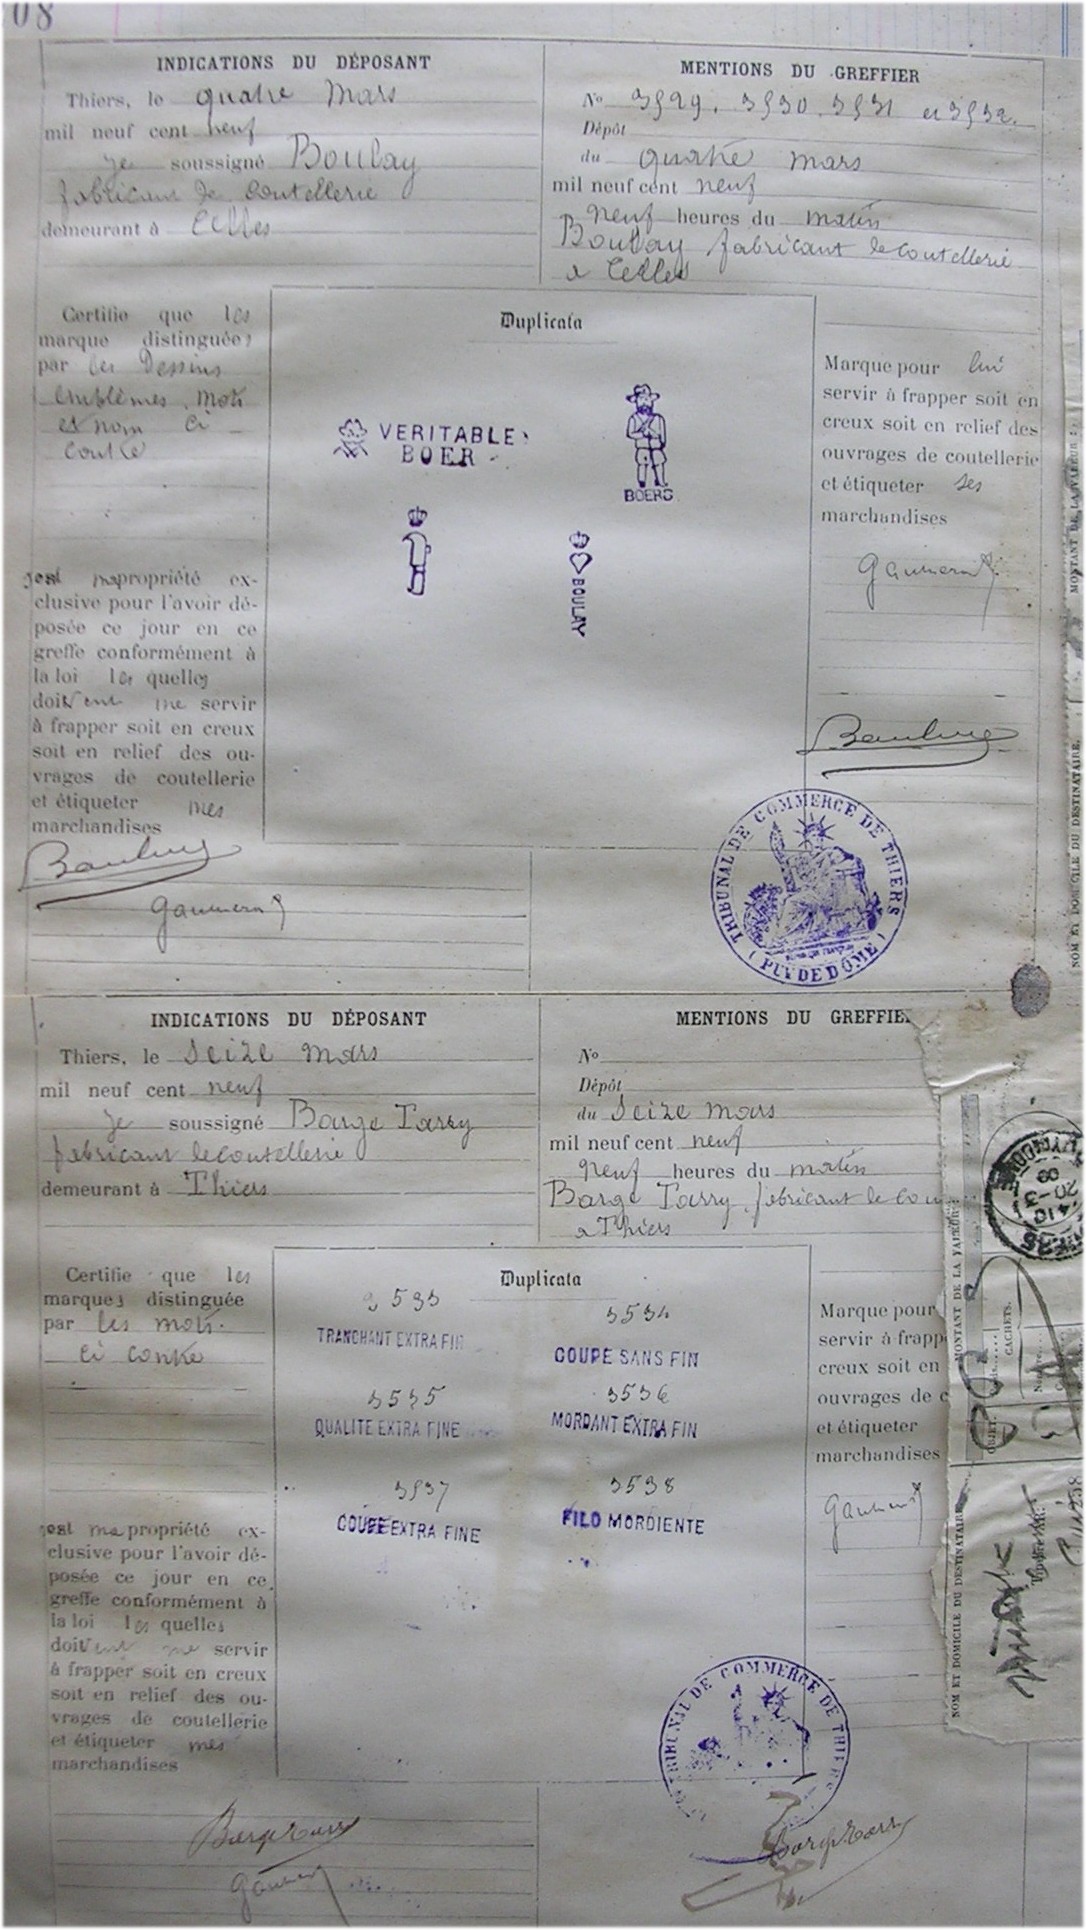 08
INDICATIONS DU DÉPOSANT
Thiers, le quatre Mars
mil neuf cent neuf
je soussigné Boulay
fabricant de coutellerie
demeurant à Celles
MENTIONS DU GREFFIER
No 3529. 3530. 3531 et 3532.
Dépôt
du quatre mars
mil neuf cent neuf
neuf heures du matin
Boulay fabricant de coutellerie
a Celles
Certifie que les
marque distinguées
par les Dessins
Emblèmes, mots
et nom ci
contre
est ma propriété ex-
clusive pour l'avoir dé-
posée ce jour en ce
greffe conformément à
la loi les quelles
doivent me servir
à frapper soit en creux
soit en relief des ou-
vrages de coutellerie
et étiqueter mes
marchandises
Duplicata
VERITABLE
BOER
BOERS
BOULAY
Marque pour lui
servir à frapper soit en
creux soit en relief des
ouvrages de coutellerie
et étiqueter ses
marchandises
TRIBUNAL DE COMMERCE DE THIERS
(PUY DE DÔME)
MONTANT DE LA VALEUR
NOM ET DOMICILE DU DESTINATAIRE.
INDICATIONS DU DÉPOSANT
Thiers, le Seize Mars
mil neuf cent neuf
je soussigné Barge Tarry
fabricant de coutellerie
demeurant à Thiers
MENTIONS DU GREFFIE
No
Dépôt
du Seize mars
mil neuf cent neuf
neuf heures du matin
Barge Tarry, fabricant de cou
a Thiers
Certifie que les
marques distinguée
par les mots
ci contre
est ma propriété ex-
clusive pour l'avoir dé-
posée ce jour en ce
greffe conformément à
la loi les quelles
doivent me servir
à frapper soit en creux
soit en relief des ou-
vrages de coutellerie
et étiqueter mes
marchandises
Duplicata
3533
TRANCHANT EXTRA FIN
3534
COUPE SANS FIN
3535
QUALITE EXTRA FINE
3536
MORDANT EXTRA FIN
3537
COUPE EXTRA FINE
3538
FILO MORDIENTE
Marque pour
servir à frapp
creux soit en
ouvrages de c
et étiqueter
marchandises
TRIBUNAL DE COMMERCE DE THIERS
Barge Tarry
Barge Tarry
MONTANT DE LA VALEUR
CACHETS.
OBJET.
NOM ET DOMICILE DU DESTINATAIRE
20-3
09